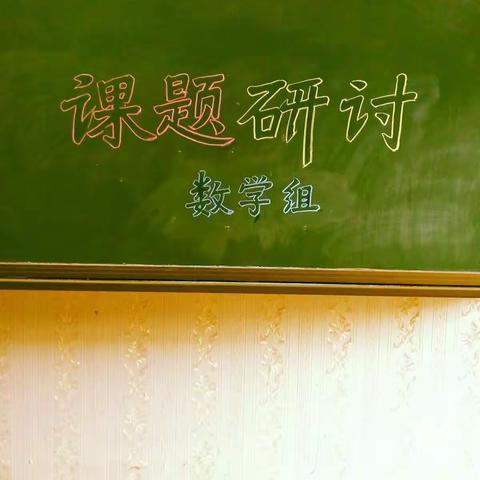 课题研讨
数学组